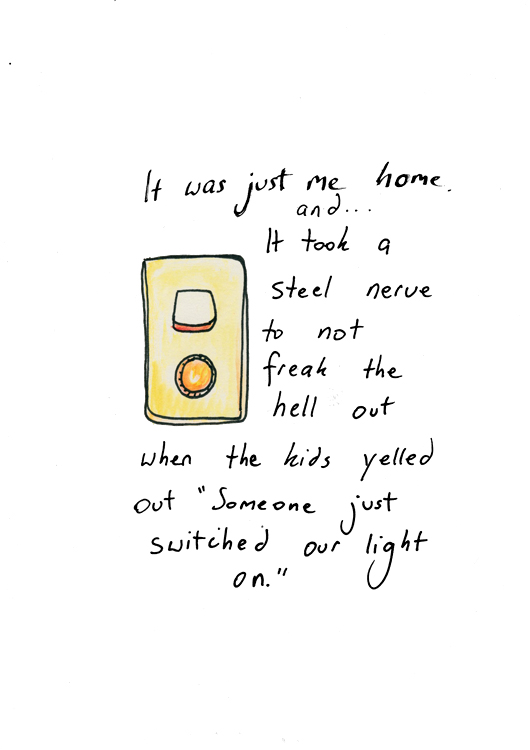 It was just me home.
and...
It took a
steel nerve
to not
freak the
hell out
when the kids yelled
out "Someone just
switched our light
on."